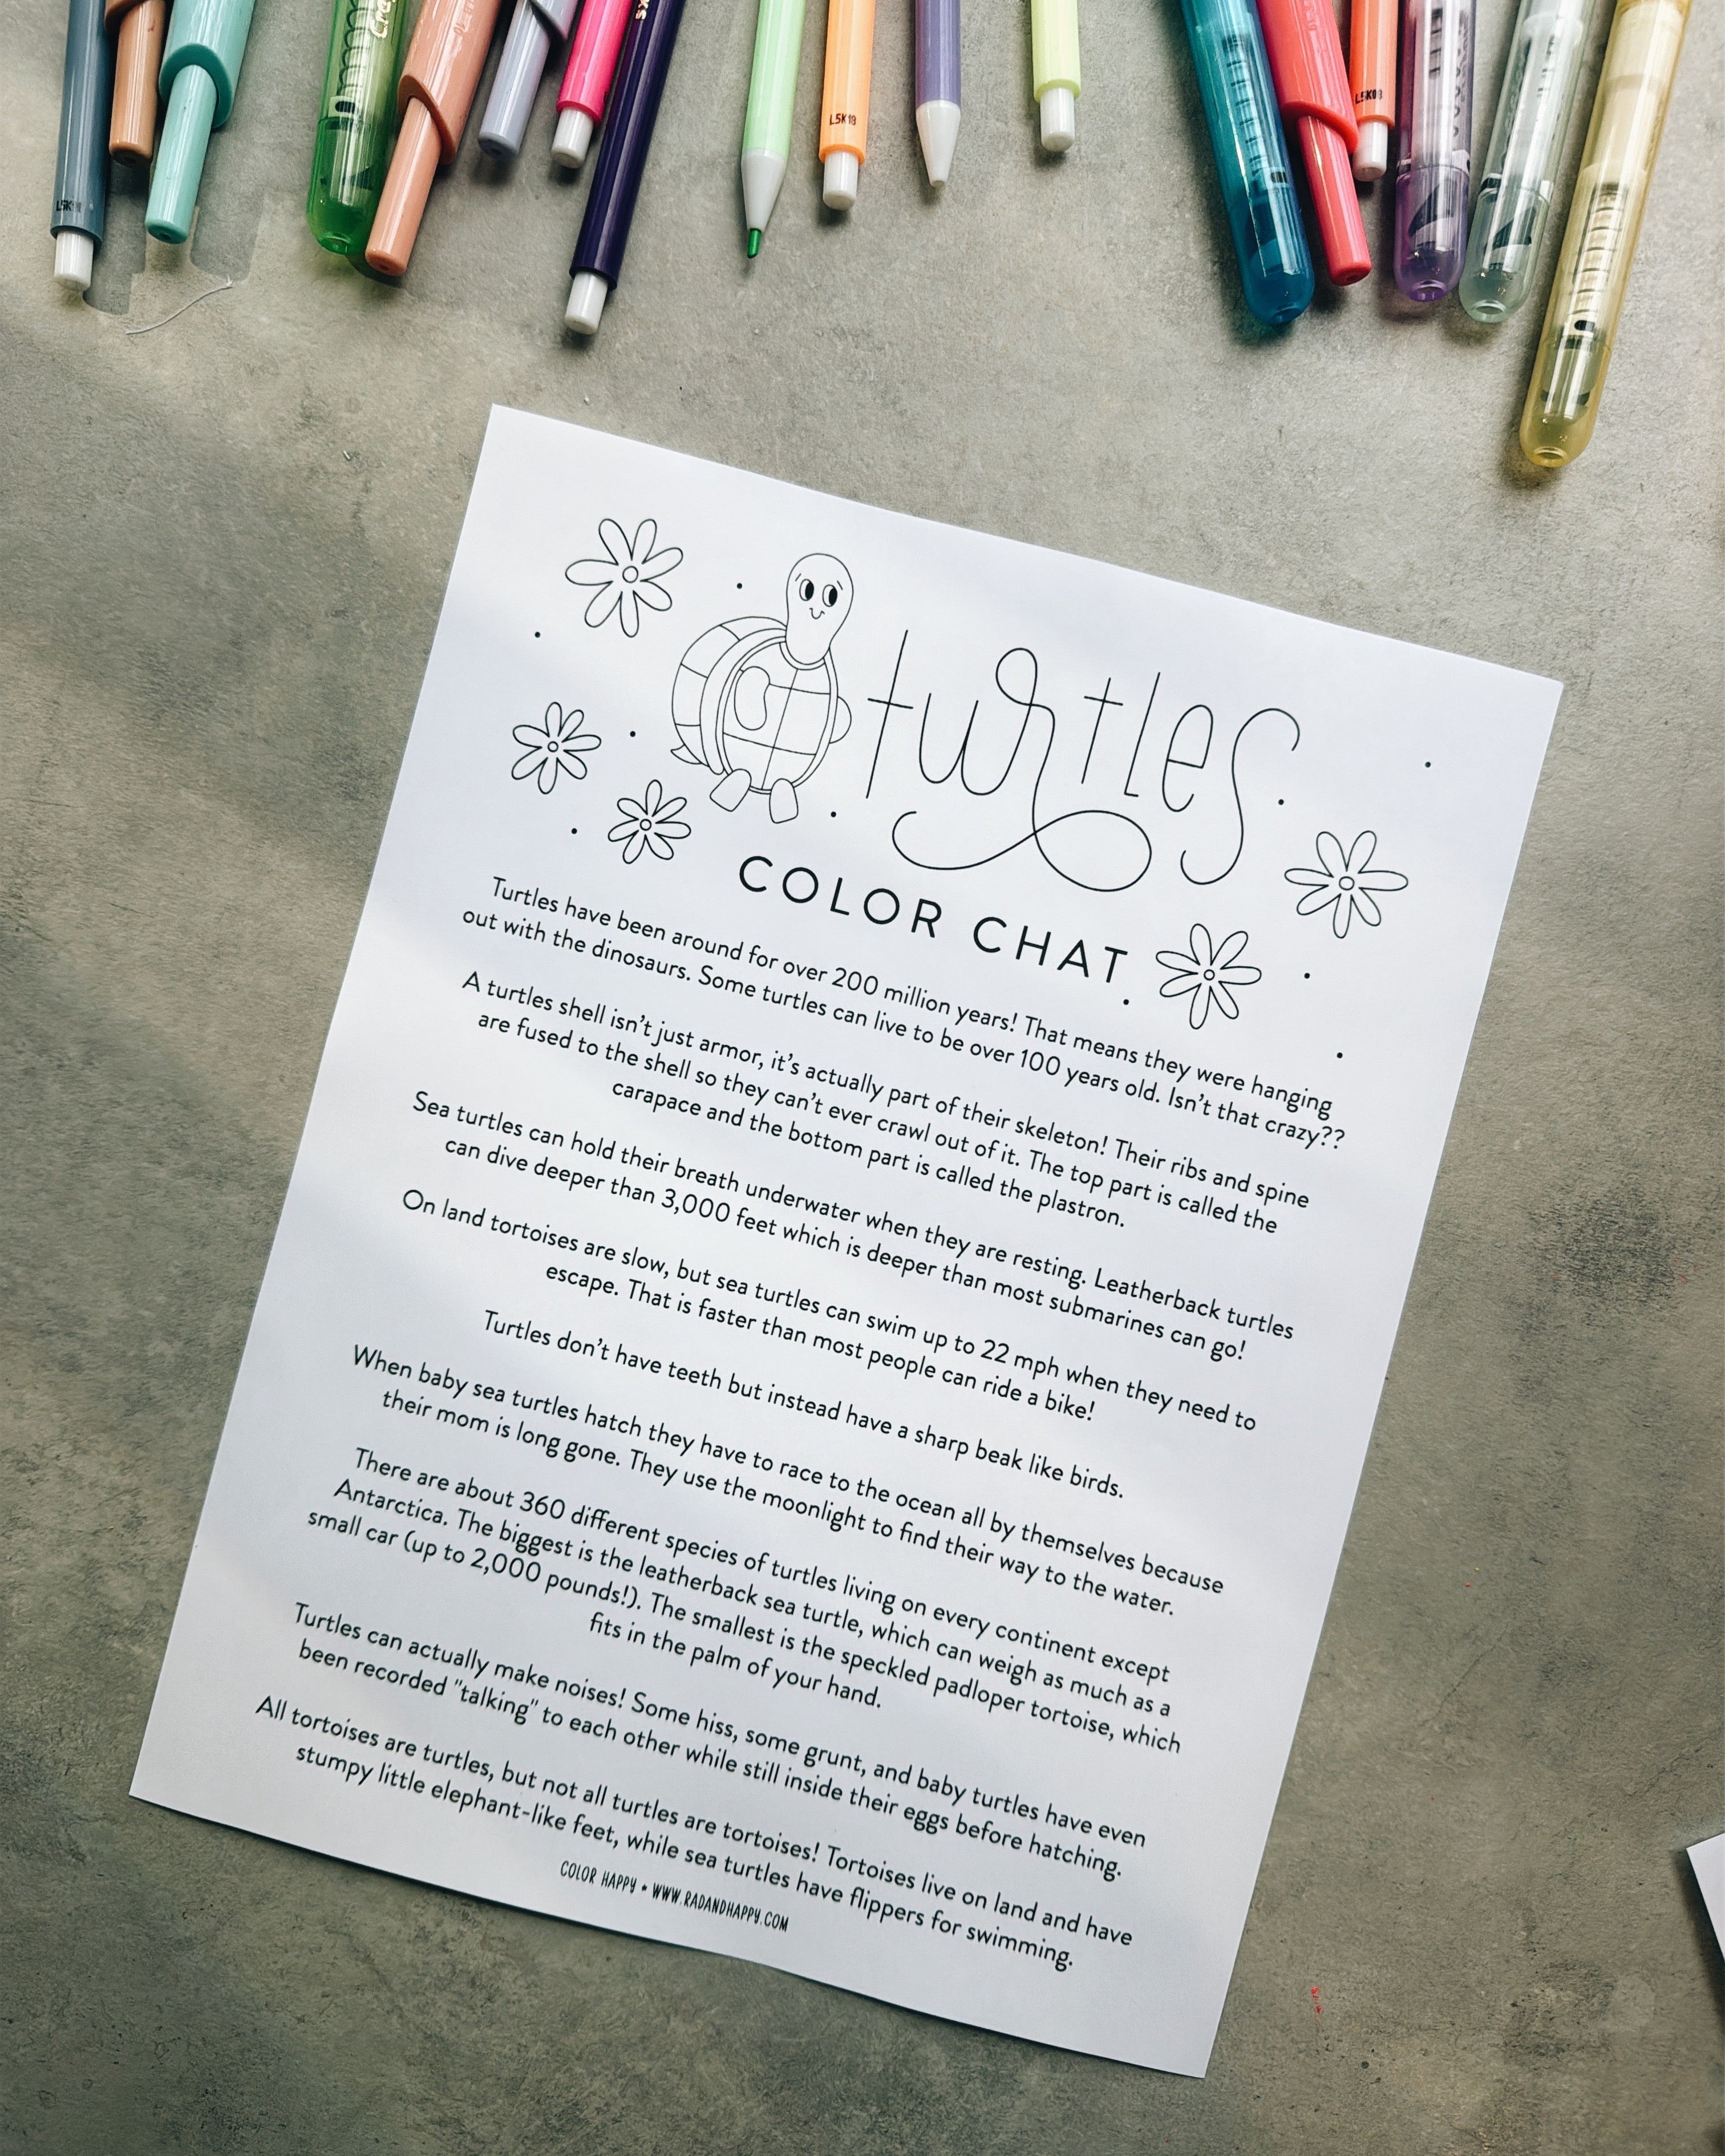 Cra
ks
L5K18
L5K08
turtles
COLOR CHAT
Turtles have been around for over 200 million years! That means they were hanging
out with the dinosaurs. Some turtles can live to be over 100 years old. Isn't that crazy??
A turtles shell isn't just armor, it's actually part of their skeleton! Their ribs and spine
are fused to the shell so they can't ever crawl out of it. The top part is called the
carapace and the bottom part is called the plastron.
Sea turtles can hold their breath underwater when they are resting. Leatherback turtles
can dive deeper than 3,000 feet which is deeper than most submarines can go!
On land tortoises are slow, but sea turtles can swim up to 22 mph when they need to
escape. That is faster than most people can ride a bike!
Turtles don't have teeth but instead have a sharp beak like birds.
When baby sea turtles hatch they have to race to the ocean all by themselves because
their mom is long gone. They use the moonlight to find their way to the water.
There are about 360 different species of turtles living on every continent except
Antarctica. The biggest is the leatherback sea turtle, which can weigh as much as a
small car (up to 2,000 pounds!). The smallest is the speckled padloper tortoise, which
fits in the palm of your hand.
Turtles can actually make noises! Some hiss, some grunt, and baby turtles have even
been recorded "talking" to each other while still inside their eggs before hatching.
All tortoises are turtles, but not all turtles are tortoises! Tortoises live on land and have
stumpy little elephant-like feet, while sea turtles have flippers for swimming.
COLOR HAPPY • WWW.RADANDHAPPY.COM